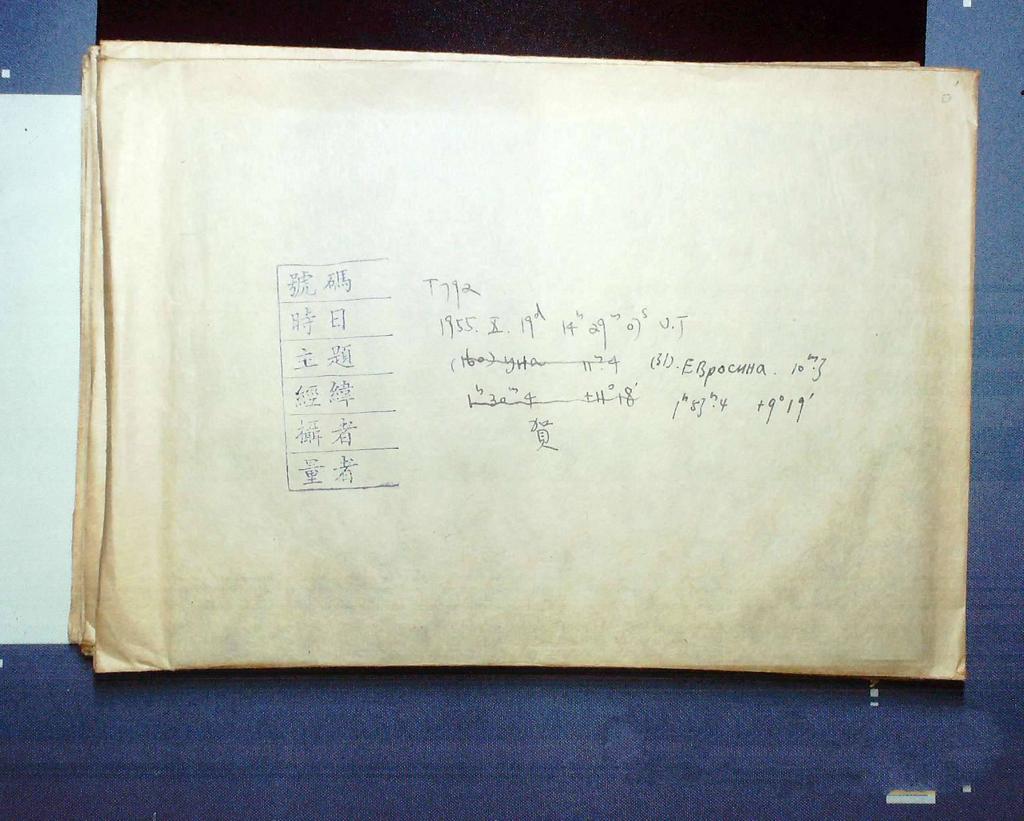 號碼 T792
時日 1955. X. 19ᵈ 14ʰ 29ᵐ 07ˢ U.T
主題 (160) УНА 11ᵐ.4 (31). Евросина. 10ᵐ.3
經緯 1ʰ 30ᵐ.4 +11° 18′ 1ʰ 53ᵐ.4 +9° 19′
攝者 賀
量者